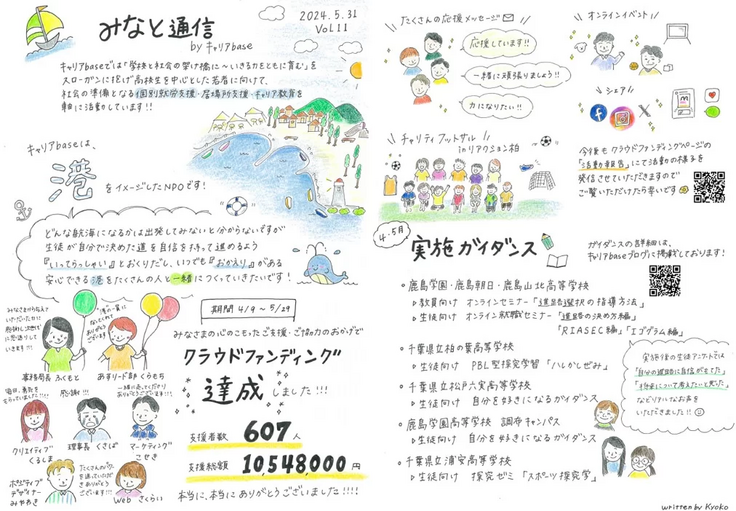 みなと通信
by キャリアbase
2024.5.31
Vol.11
キャリアbaseでは「学校と社会の架け橋に～いきる力をともに育む」を
スローガンに掲げ高校生を中心とした若者に向けて、
社会の準備となる個別就労支援・居場所支援・キャリア教育を
軸に活動をしています!!
キャリアbaseは、
港 をイメージしたNPOです!
どんな航海になるかは出発してみないと分からないですが
生徒が自分で決めた道を自信をもって進めるよう
『いってらっしゃい』とおくりだし、いつでも『おかえり』がある
安心できる港をたくさんの人と一緒につくっていきたいです!
事務局長 ふくもと
感謝!!!
クリエイティブ
くるしま
理事長 くさば
マーケティング
こせき
みやおき
Web さくらい
期間 4/9～5/29
みなさまの心のこもったご支援・ご協力のおかげで
クラウドファンディング
達成しました!!!
支援者数 607人
支援総額 10,548,000円
本当に、本当にありがとうございました!!!!
たくさんの応援メッセージ
応援しています!!
一緒に頑張りましょう!!
力になりたい!!
チャリティフットサル
inリアクション柏
オンラインイベント
シェア
今後もクラウドファンディングページの
「活動報告」にて活動の様子を
発信させていただきますので
ご覧いただけたら幸いです
4・5月
実施ガイダンス
ガイダンスの詳細は、
キャリアbaseブログに掲載しております!
鹿島学園・鹿島朝日・鹿島山北高等学校
教員向け オンラインセミナー「進路選択の指導方法」
生徒向け オンライン就職セミナー「進路の決め方編」
「RIASEC編」「エゴグラム編」
千葉県立柏の葉高等学校
生徒向け PBL型探究学習「ハしかしぜみ」
千葉県立松戸六実高等学校
生徒向け 自分を好きになるガイダンス
鹿島学園高等学校 調布キャンパス
生徒向け 自分を好きになるガイダンス
千葉県立浦安高等学校
生徒向け 探究ゼミ「スポーツ探究学」
実施後の生徒アンケートでは
「自分の進路に自信がもてた」
などうれしいお声を
いただきました!!
written by Kyoko